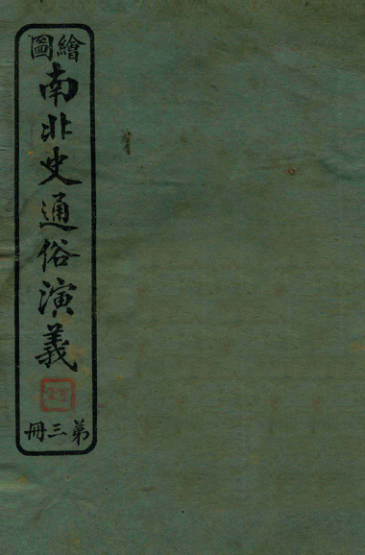 繪圖
南北史通俗演義
第三冊